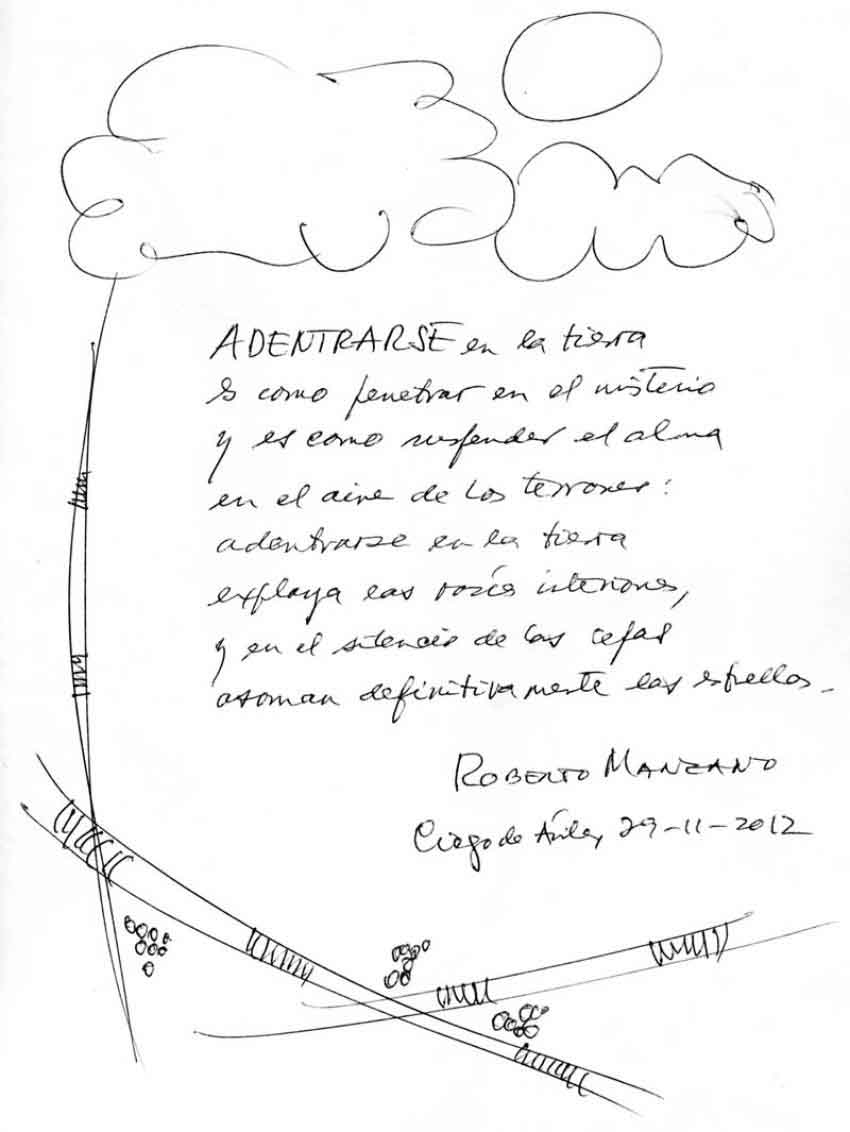 ADENTRARSE en la tierra
es como penetrar en el misterio
y es como suspender el alma
en el aire de los terrones:
adentrarse en la tierra
explaya las raíces interiores,
y en el silencio de las cepas
asoman definitivamente las estrellas.
ROBERTO MANZANO
Ciego de Ávila, 29-11-2012